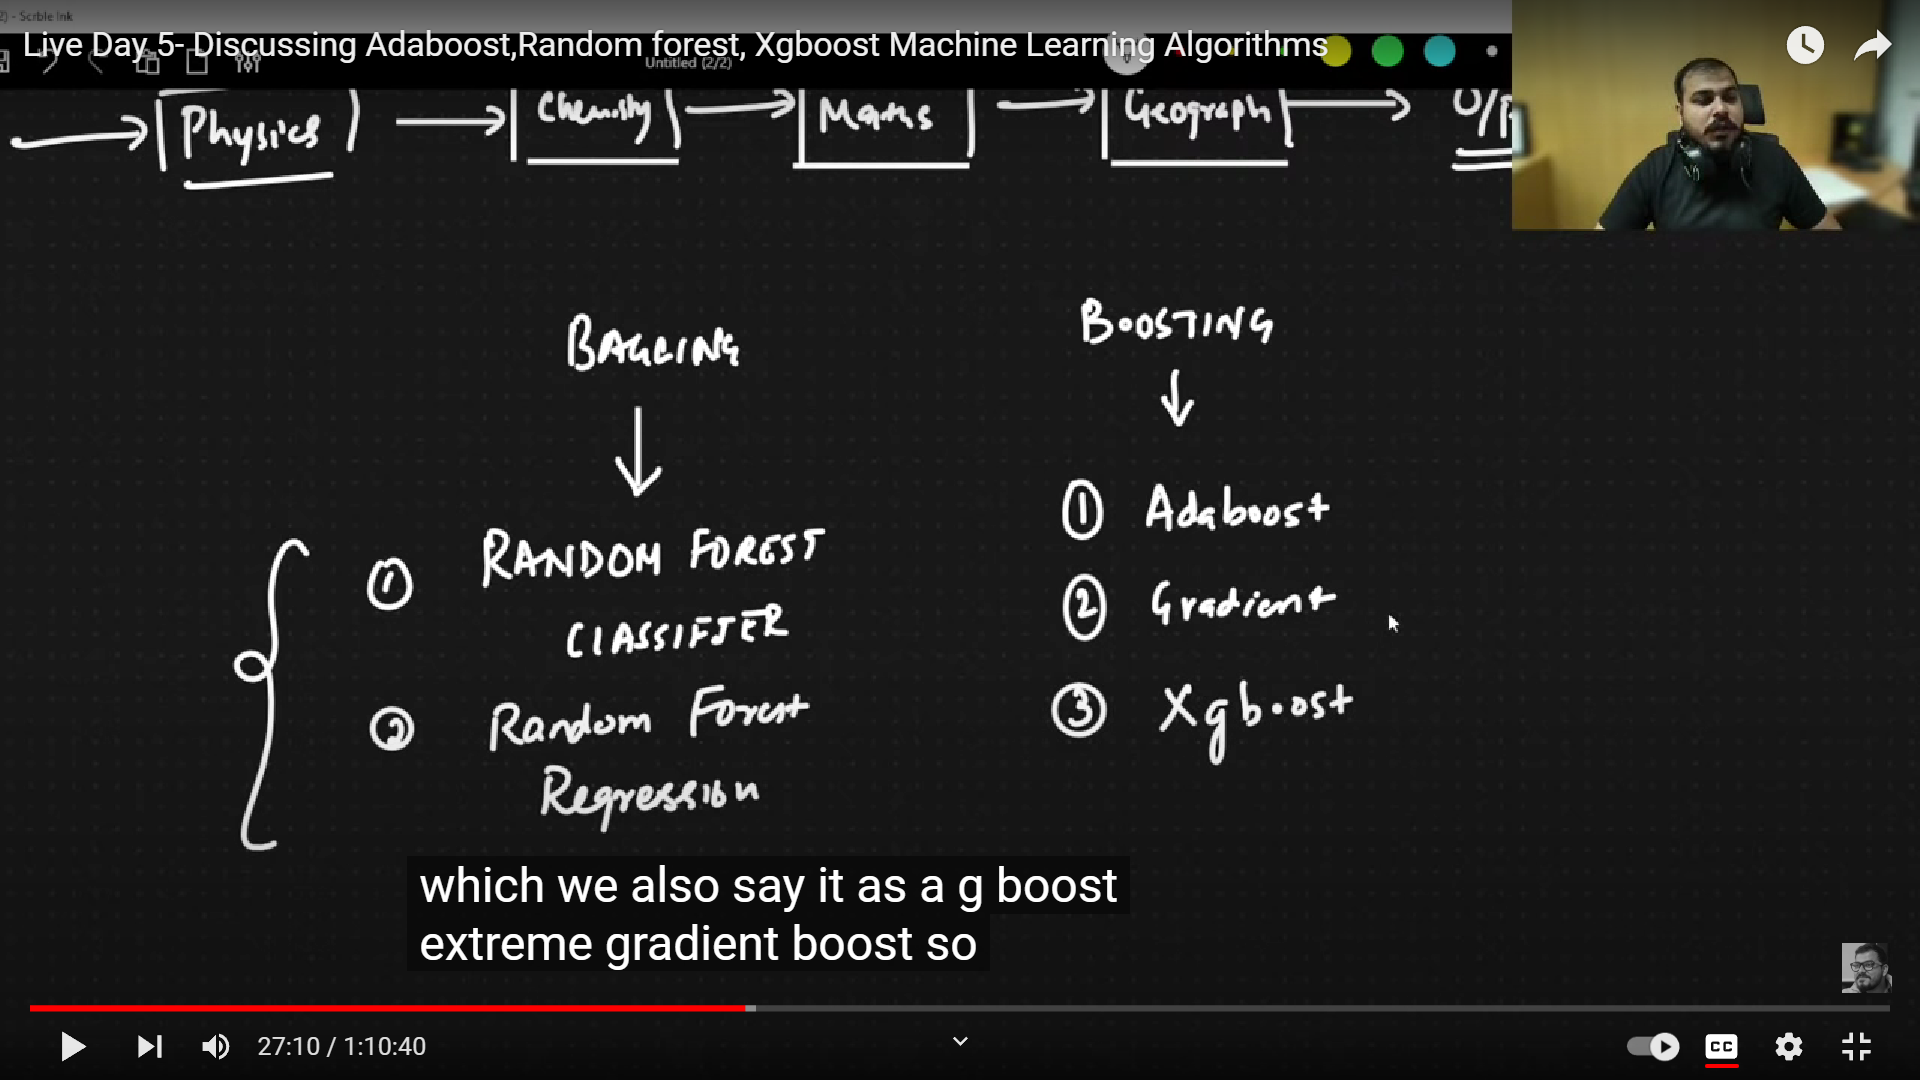 2) - Scrble Ink
Live Day 5- Discussing Adaboost,Random forest, Xgboost Machine Learning Algorithms
Untitled (2/2)
Physics Chemisty Maths Geograph O/p
BAGGING
BOOSTING
1 RANDOM FOREST
CLASSIFIER
2 Random Forest
Regression
1 Adaboost
2 Gradient
3 Xgboost
which we also say it as a g boost
extreme gradient boost so
27:10 / 1:10:40
CC